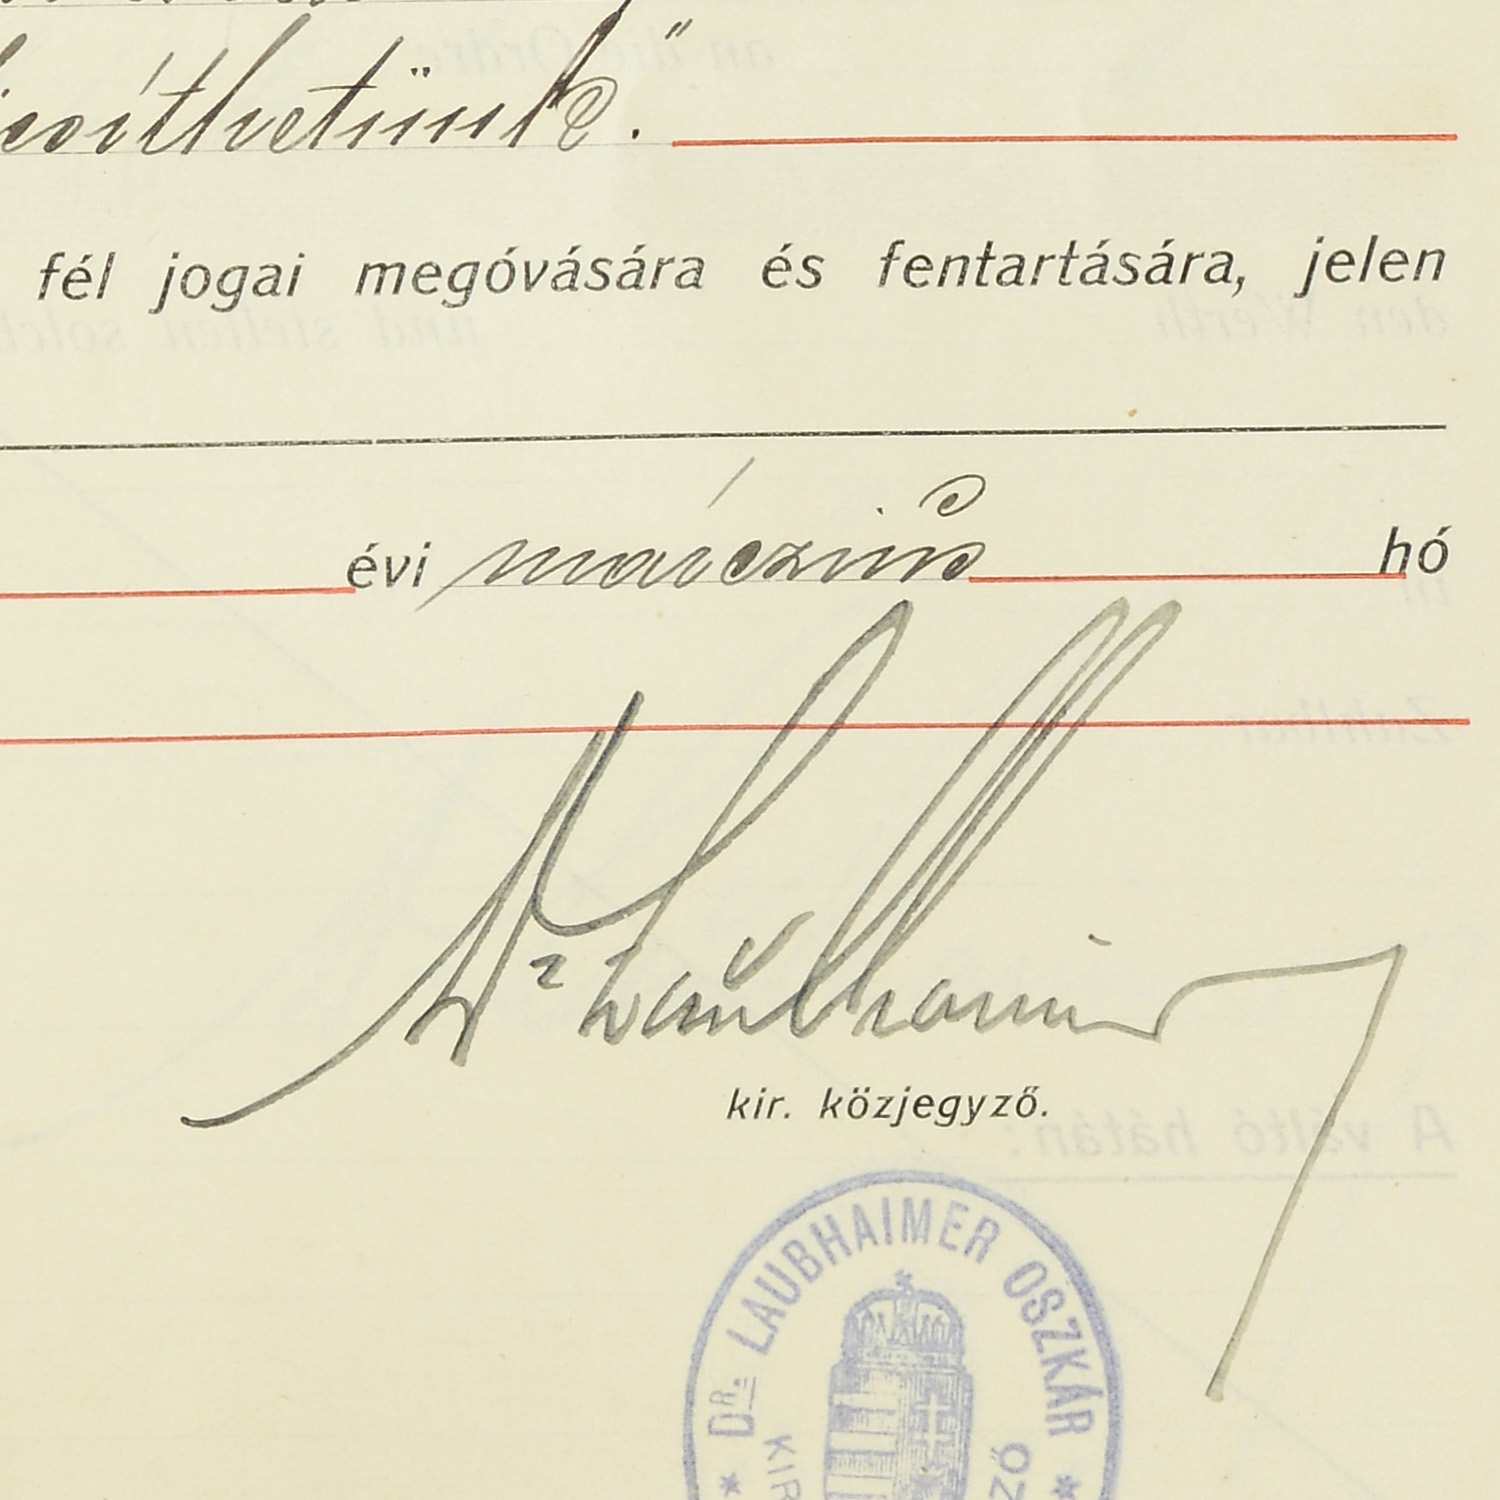 fél jogai megóvására és fentartására, jelen
évi márczius hó
Dr Laubhaimer
kir. közjegyző.
DR. LAUBHAIMER OSZKÁR
KIR